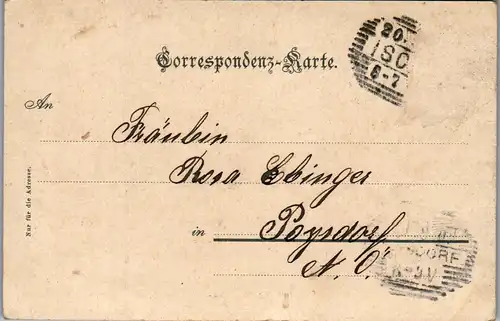 Correspondenz-Karte.
20.
ISC
6-7
An
Fräulein
Rosa Ebinger
in Poysdorf
N. Ö.
DORF
Nur für die Adresse.